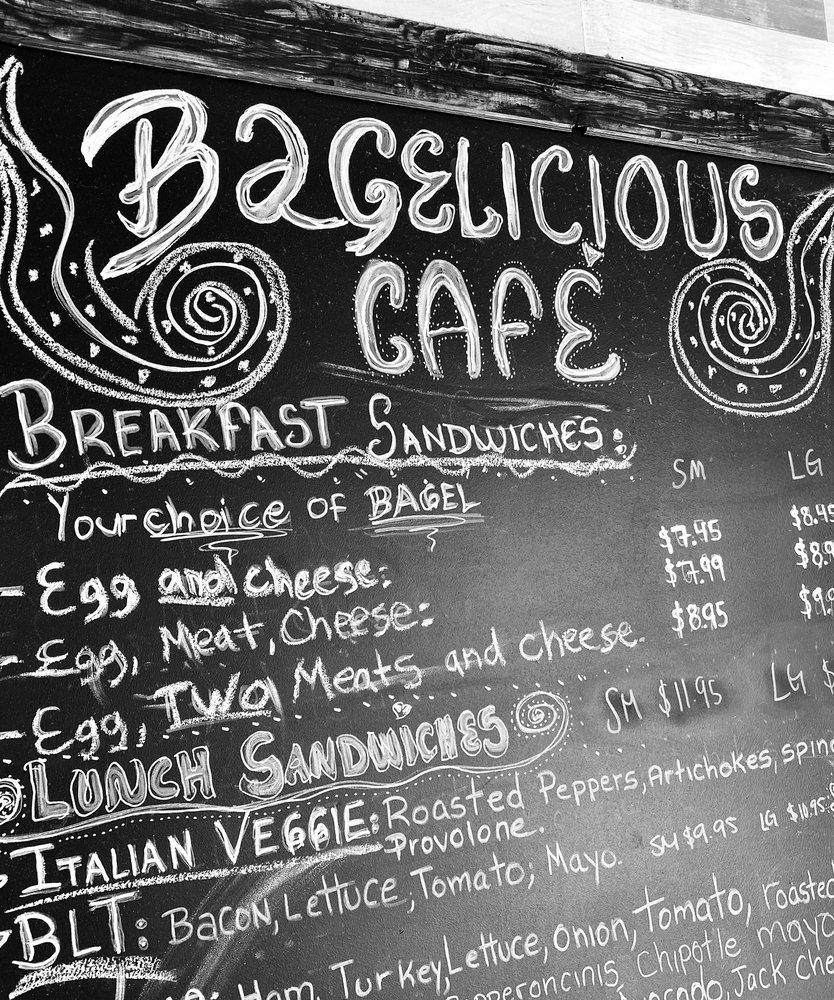 BAGELICIOUS
CAFÉ
BREAKFAST SANDWICHES:
Your choice of BAGEL SM LG
- Egg and cheese: $7.45 $8.45
- Egg, Meat, Cheese: $7.99 $8.9
- Egg, TWO Meats and cheese. $8.95 $9.9
LUNCH SANDWICHES SM $11.95 LG $
ITALIAN VEGGIE: Roasted Peppers, Artichokes, spin
Provolone.
BLT: Bacon, Lettuce, Tomato, Mayo. SM $9.95 LG $10.95
Ham, Turkey, Lettuce, Onion, Tomato, roasted
Pepperoncinis, Chipotle mayo
Avocado, Jack che